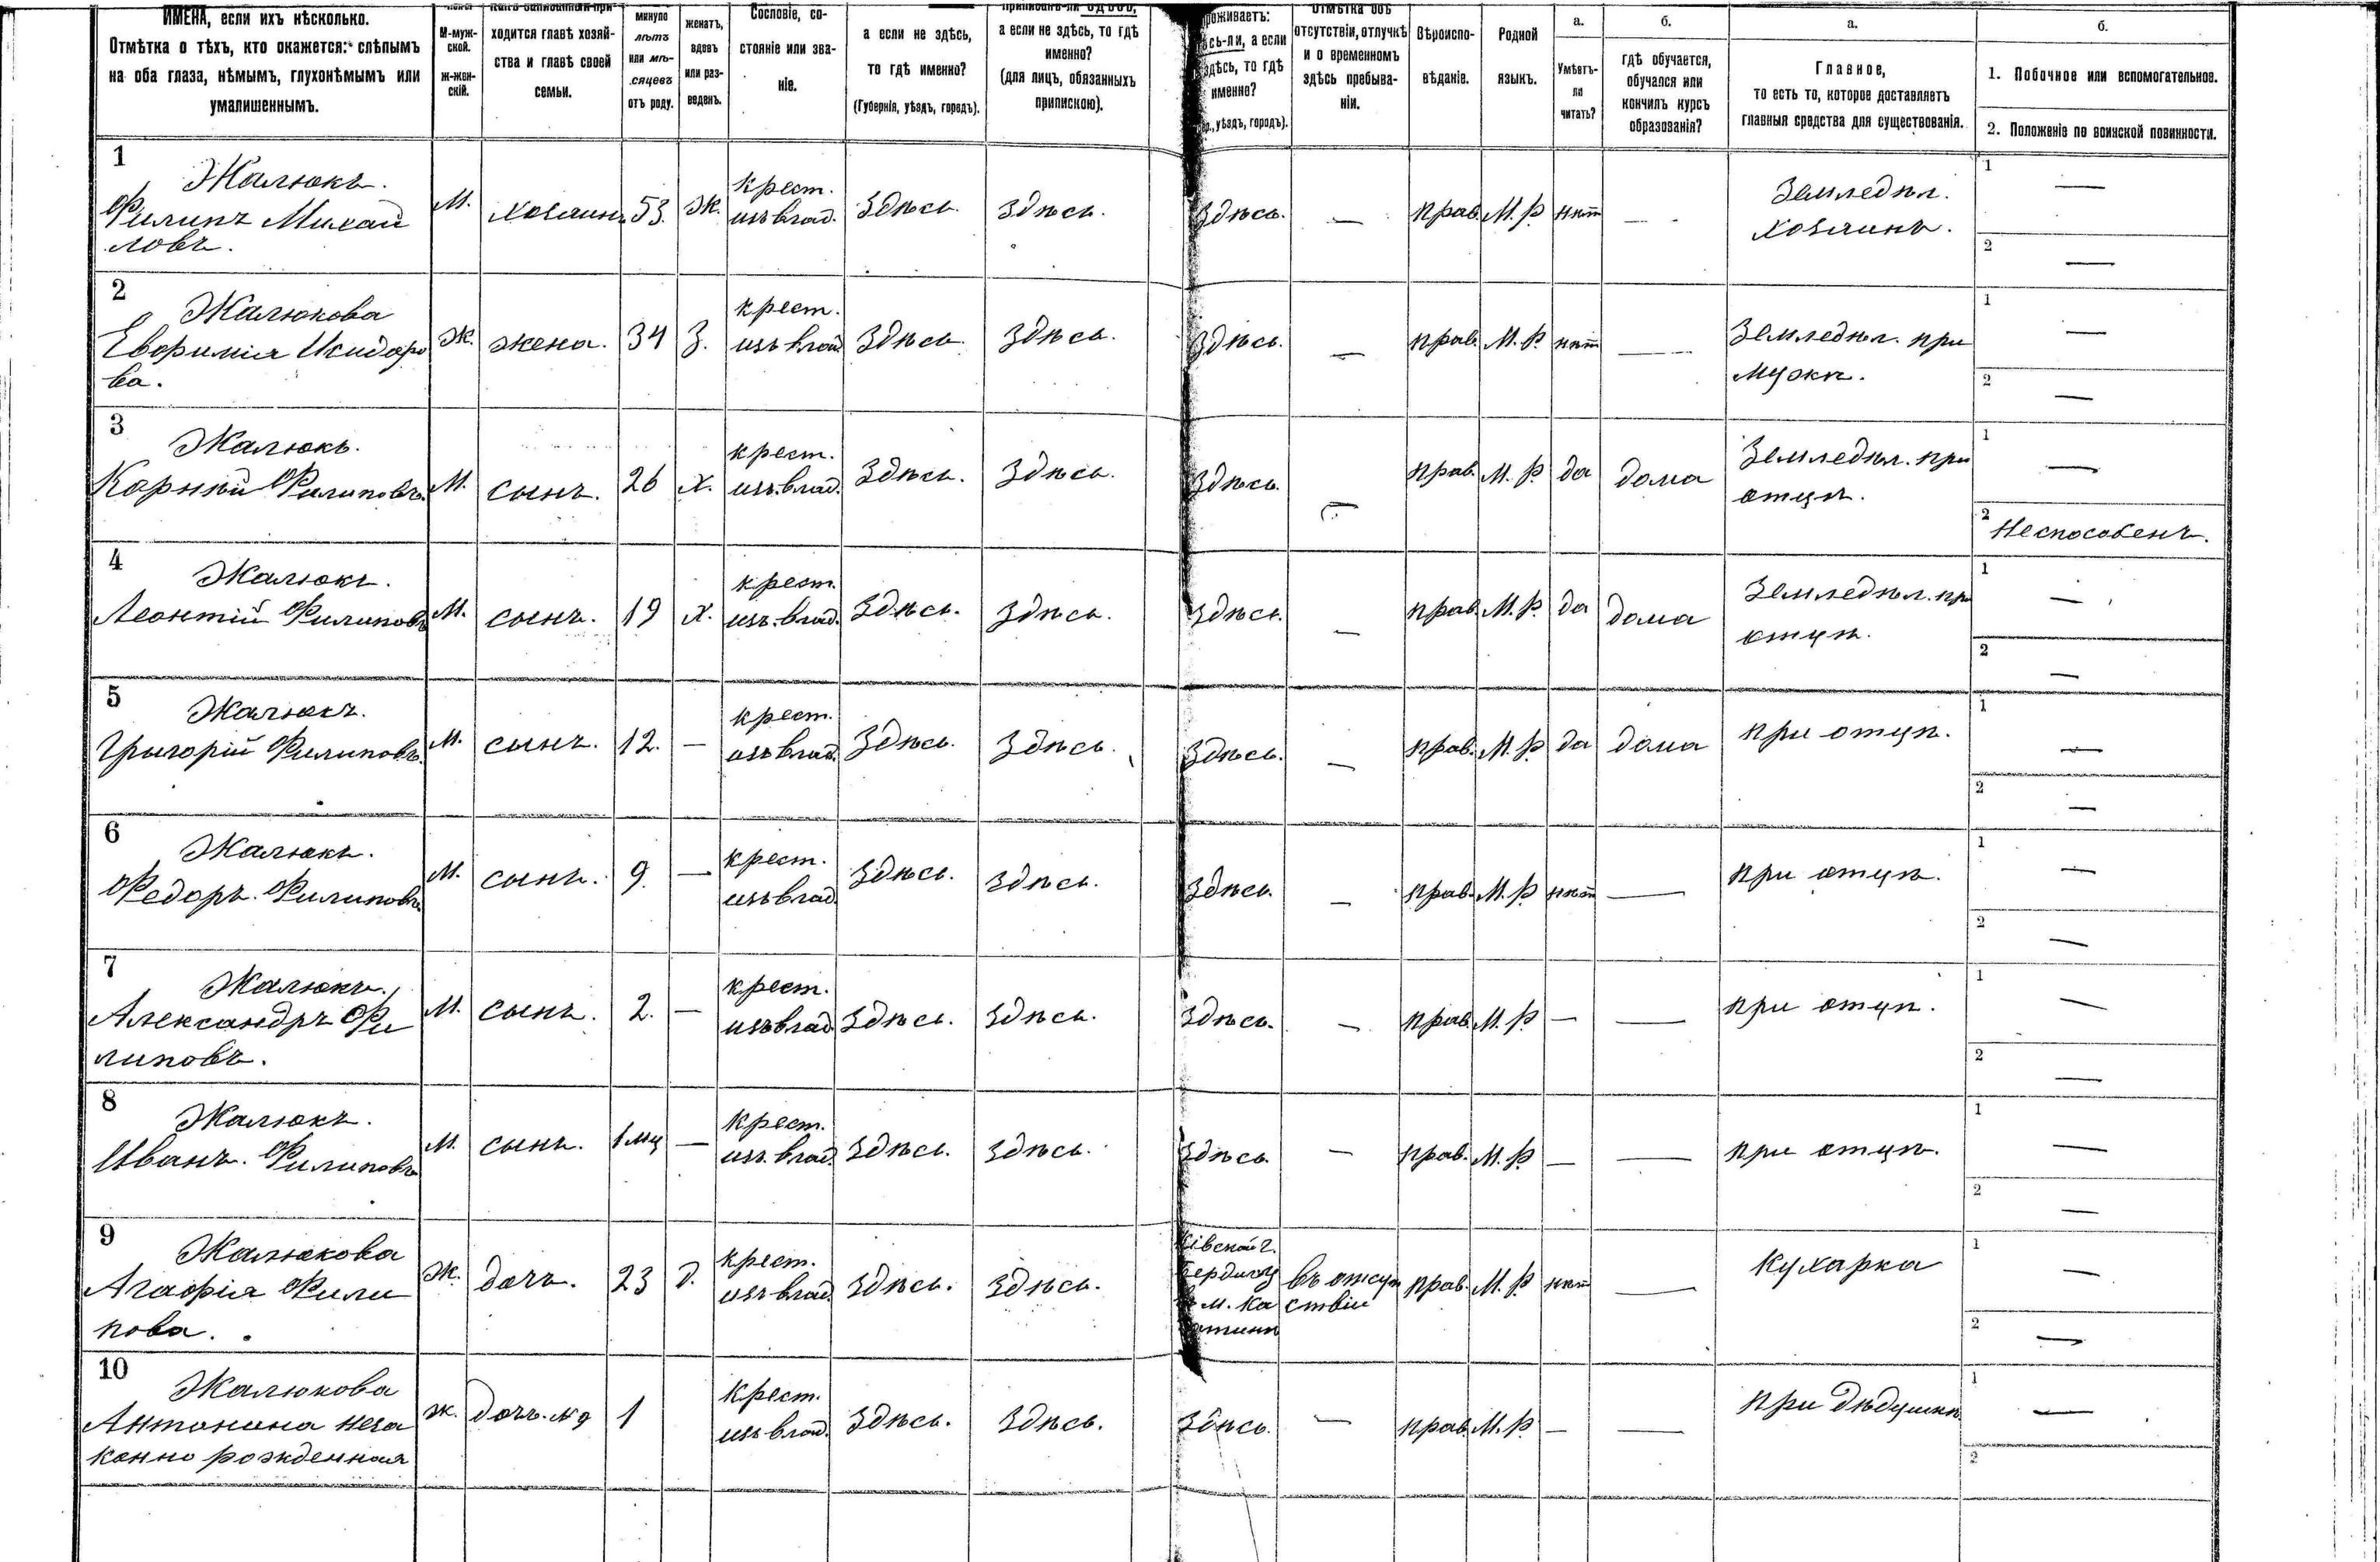 ИМЕНА, если ихъ нѣсколько.
Отмѣтка о тѣхъ, кто окажется: слѣпымъ
на оба глаза, нѣмымъ, глухонѣмымъ или
умалишеннымъ.
М-муж-
ской.
Ж-жен-
скій.
ходится главѣ хозяй-
ства и главѣ своей
семьи.
минуло
лѣтъ
или мѣ-
сяцевъ
отъ роду.
женатъ,
вдовъ
или раз-
веденъ.
Сословіе, со-
стояніе или зва-
ніе.
а если не здѣсь,
то гдѣ именно?
(Губернія, уѣздъ, городъ).
а если не здѣсь, то гдѣ
именно?
(для лицъ, обязанныхъ
припискою).
проживаетъ:
здѣсь-ли, а если
не здѣсь, то гдѣ
именно?
(Губ., уѣздъ, городъ).
Отмѣтка объ
отсутствіи, отлучкѣ
и о временномъ
здѣсь пребыва-
ніи.
Вѣроиспо-
вѣданіе.
Родной
языкъ.
а.
Умѣетъ-
ли
читать?
б.
гдѣ обучается,
обучался или
кончилъ курсъ
образованія?
а.
Главное,
то есть то, которое доставляетъ
главныя средства для существованія.
б.
1. Побочное или вспомогательное.
2. Положеніе по воинской повинности.
1
Жалюкъ.
Филипъ Михай
ловъ.
М. хозяинъ 53. Ж. крест.
изъ влад. Здѣсь. Здѣсь. Здѣсь. — прав. М. Р. нѣт — Земледѣл.
хозяинъ.
1 —
2 —
2
Жалюкова
Евфимія Исидоро
ва.
Ж. жена. 34 З. крест.
изъ влад Здѣсь Здѣсь. Здѣсь. — прав. М. Р. нѣт — Земледѣл. при
мужѣ.
1 —
2 —
3
Жалюкъ.
Корній Филиповъ.
М. сынъ. 26 Х. крест.
изъ. влад. Здѣсь. Здѣсь. Здѣсь. — прав. М. Р. да дома Земледѣл. при
отцѣ.
1 —
2 Неспособенъ.
4
Жалюкъ.
Леонтій Филиповъ
М. сынъ. 19 Х. крест.
изъ. влад. Здѣсь. Здѣсь. Здѣсь. — прав. М. Р. да дома Земледѣл. при
отцѣ.
1 —
2 —
5
Жалюкъ.
Григорій Филиповъ.
М. сынъ. 12. — крест.
изъ влад. Здѣсь. Здѣсь. Здѣсь. — прав. М. Р. да дома при отцѣ.
1 —
2 —
6
Жалюкъ.
Федоръ. Филиповъ
М. сынъ. 9. — крест.
изъ влад. Здѣсь. Здѣсь. Здѣсь. — прав. М. Р. нѣт — при отцѣ.
1 —
2 —
7
Жалюкъ.
Александръ Фи
липовъ.
М. сынъ. 2. — крест.
изъ влад Здѣсь. Здѣсь. Здѣсь. — прав. М. Р. — — при отцѣ.
1 —
2 —
8
Жалюкъ.
Иванъ. Филиповъ
М. сынъ. 1 мц — крест.
изъ. влад. Здѣсь. Здѣсь. Здѣсь. — прав. М. Р. — — при отцѣ.
1 —
2 —
9
Жалюкова
Агафія Фили
пова.
Ж. дочь. 23 д. крест.
изъ влад. Здѣсь. Здѣсь. въ отсут
ствіи прав. М. Р нѣт — Кухарка
1 —
2 —
10
Жалюкова
Антонина неза
конно рожденная
Ж. дочь. № 9 1 крест.
изъ влад. Здѣсь. Здѣсь. Здѣсь. — прав. М. Р. — — при дѣдушкѣ
1 —
2